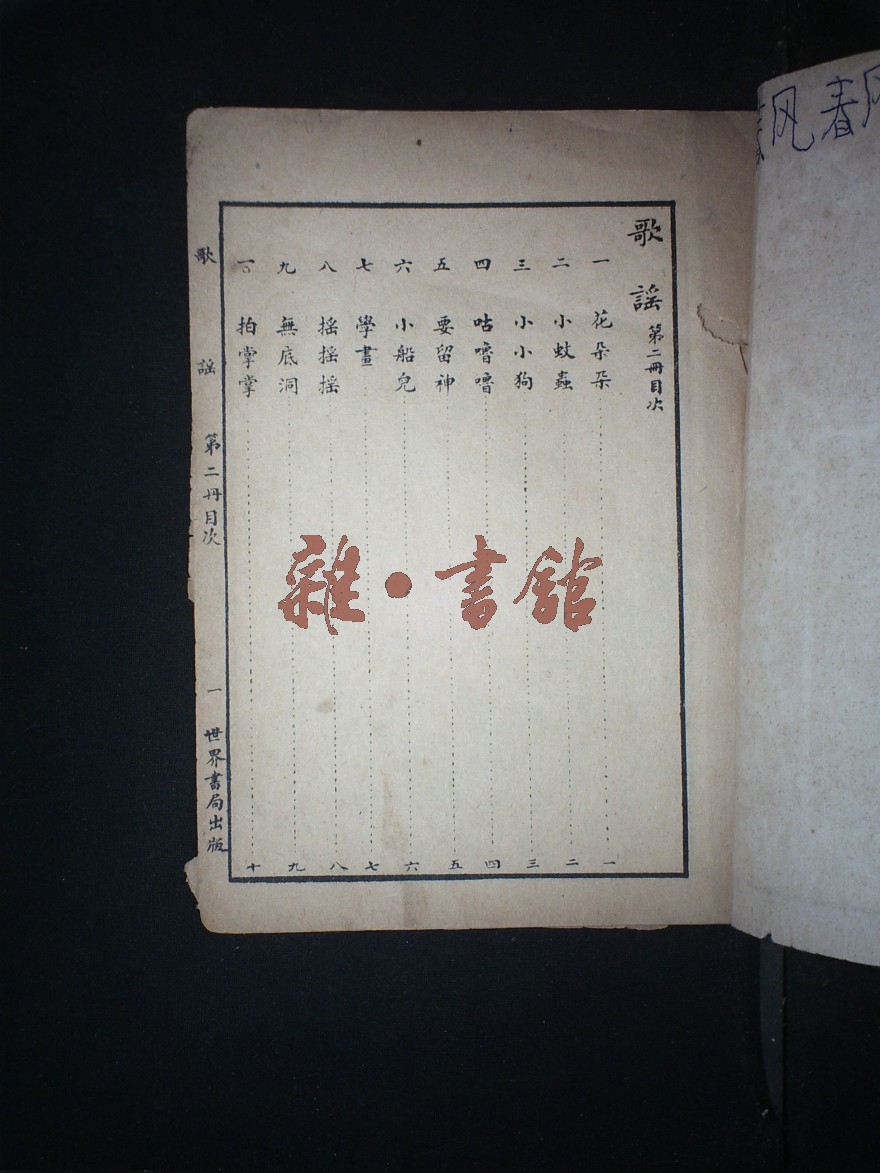 歌謠 第二冊目次
一 花朵朵 一
二 小蚊蟲 二
三 小小狗 三
四 咕嚕嚕 四
五 要留神 五
六 小船兒 六
七 學畫 七
八 搖搖搖 八
九 無底洞 九
一〇 拍掌掌 十
歌謠 第二冊目次 一 世界書局出版
雜·書館
风春